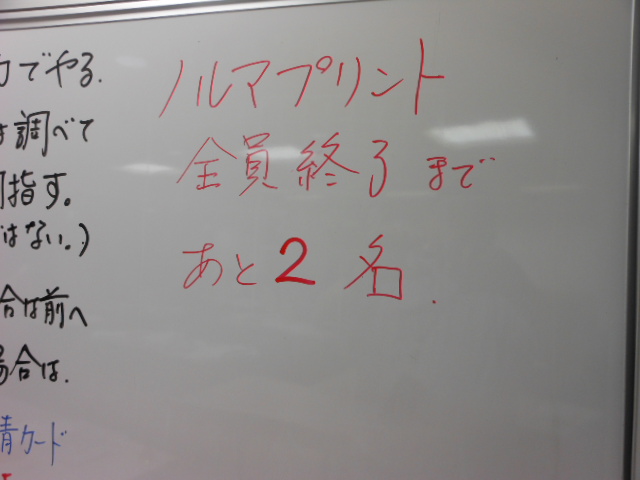 力でやる.
は調べて
指す。
はない。)
合は前へ
場合は.
青カード
ノルマプリント
全員終了まで
あと2名.